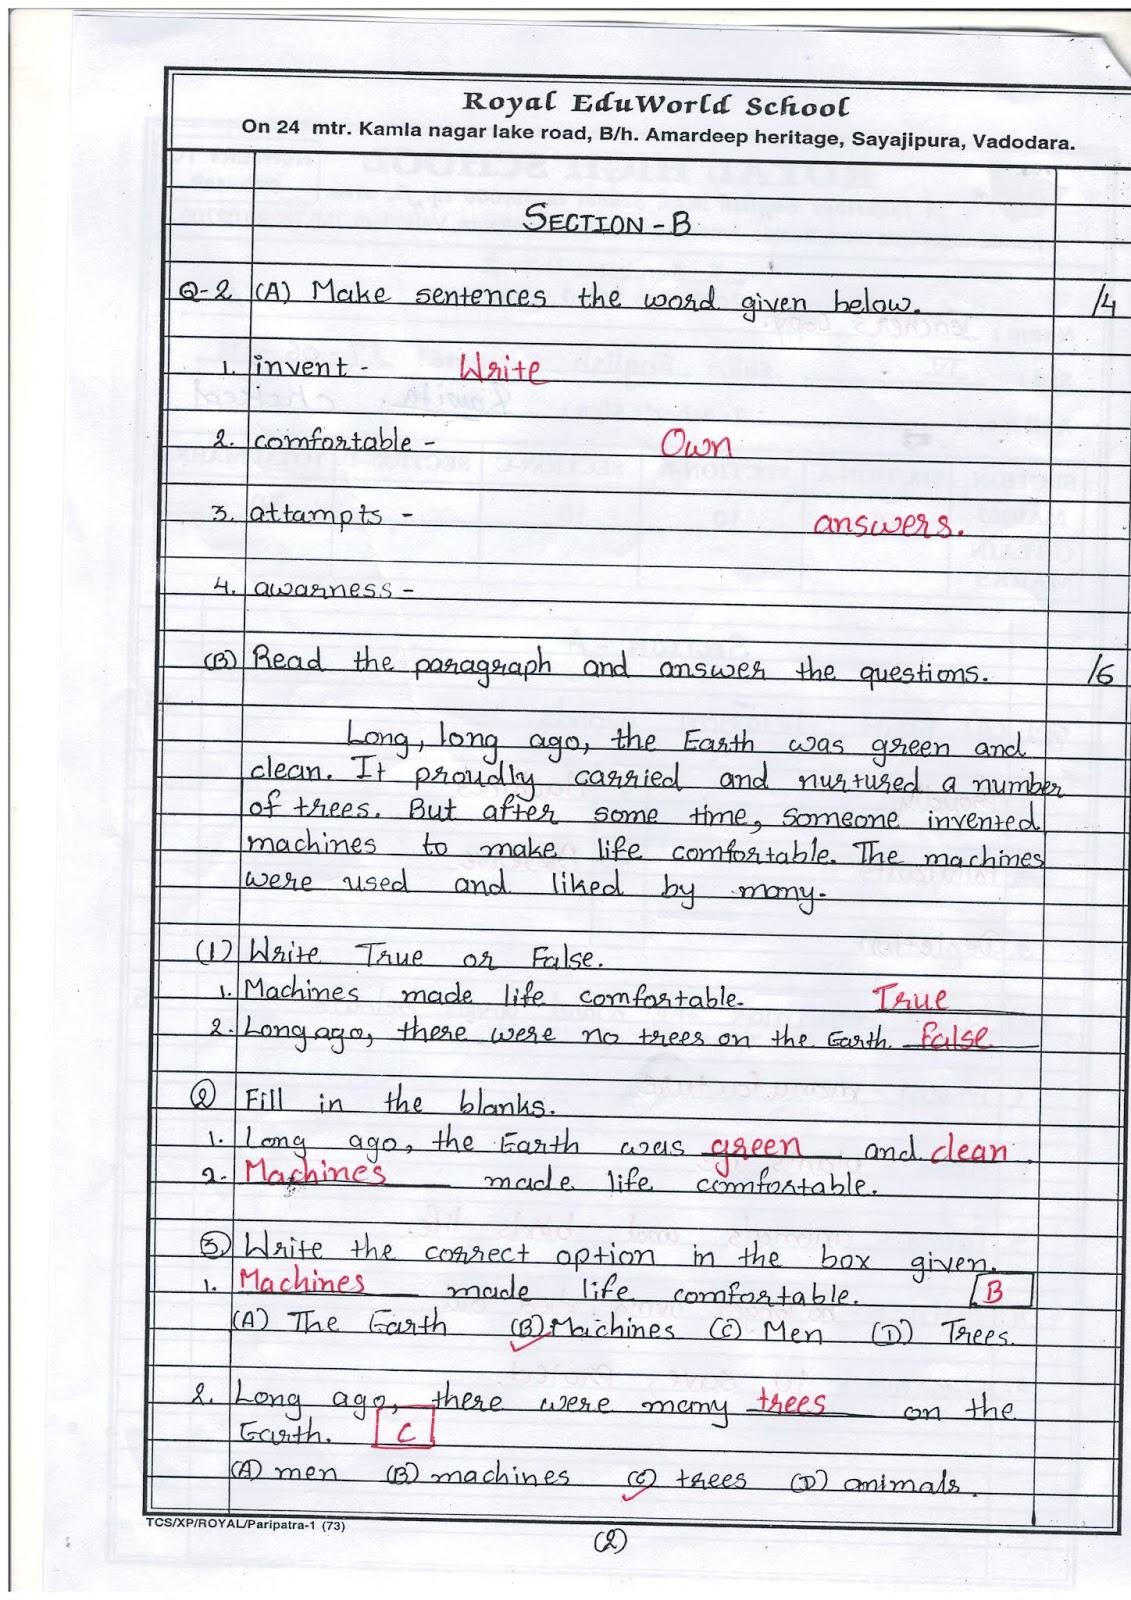 Royal EduWorld School
On 24 mtr. Kamla nagar lake road, B/h. Amardeep heritage, Sayajipura, Vadodara.
SECTION - B
Q-2 (A) Make sentences the word given below. /4
1. invent - Write
2. comfortable - Own
3. attampts - answers.
4. awarness -
(B) Read the paragraph and answer the questions. /6
Long, long ago, the Earth was green and
clean. It proudly carried and nurtured a number
of trees. But after some time, someone invented
machines to make life comfortable. The machines
were used and liked by many.
(1) Write True or False.
1. Machines made life comfortable. True
2. Long ago, there were no trees on the Earth. False
(2) Fill in the blanks.
1. Long ago, the Earth was green and clean.
2. Machines made life comfortable.
(3) Write the correct option in the box given.
1. Machines made life comfortable. B
(A) The Earth (B) Machines (C) Men (D) Trees.
2. Long ago, there were many trees on the
Earth. C
(A) men (B) machines (C) trees (D) animals.
TCS/XP/ROYAL/Paripatra-1 (73)
(2)